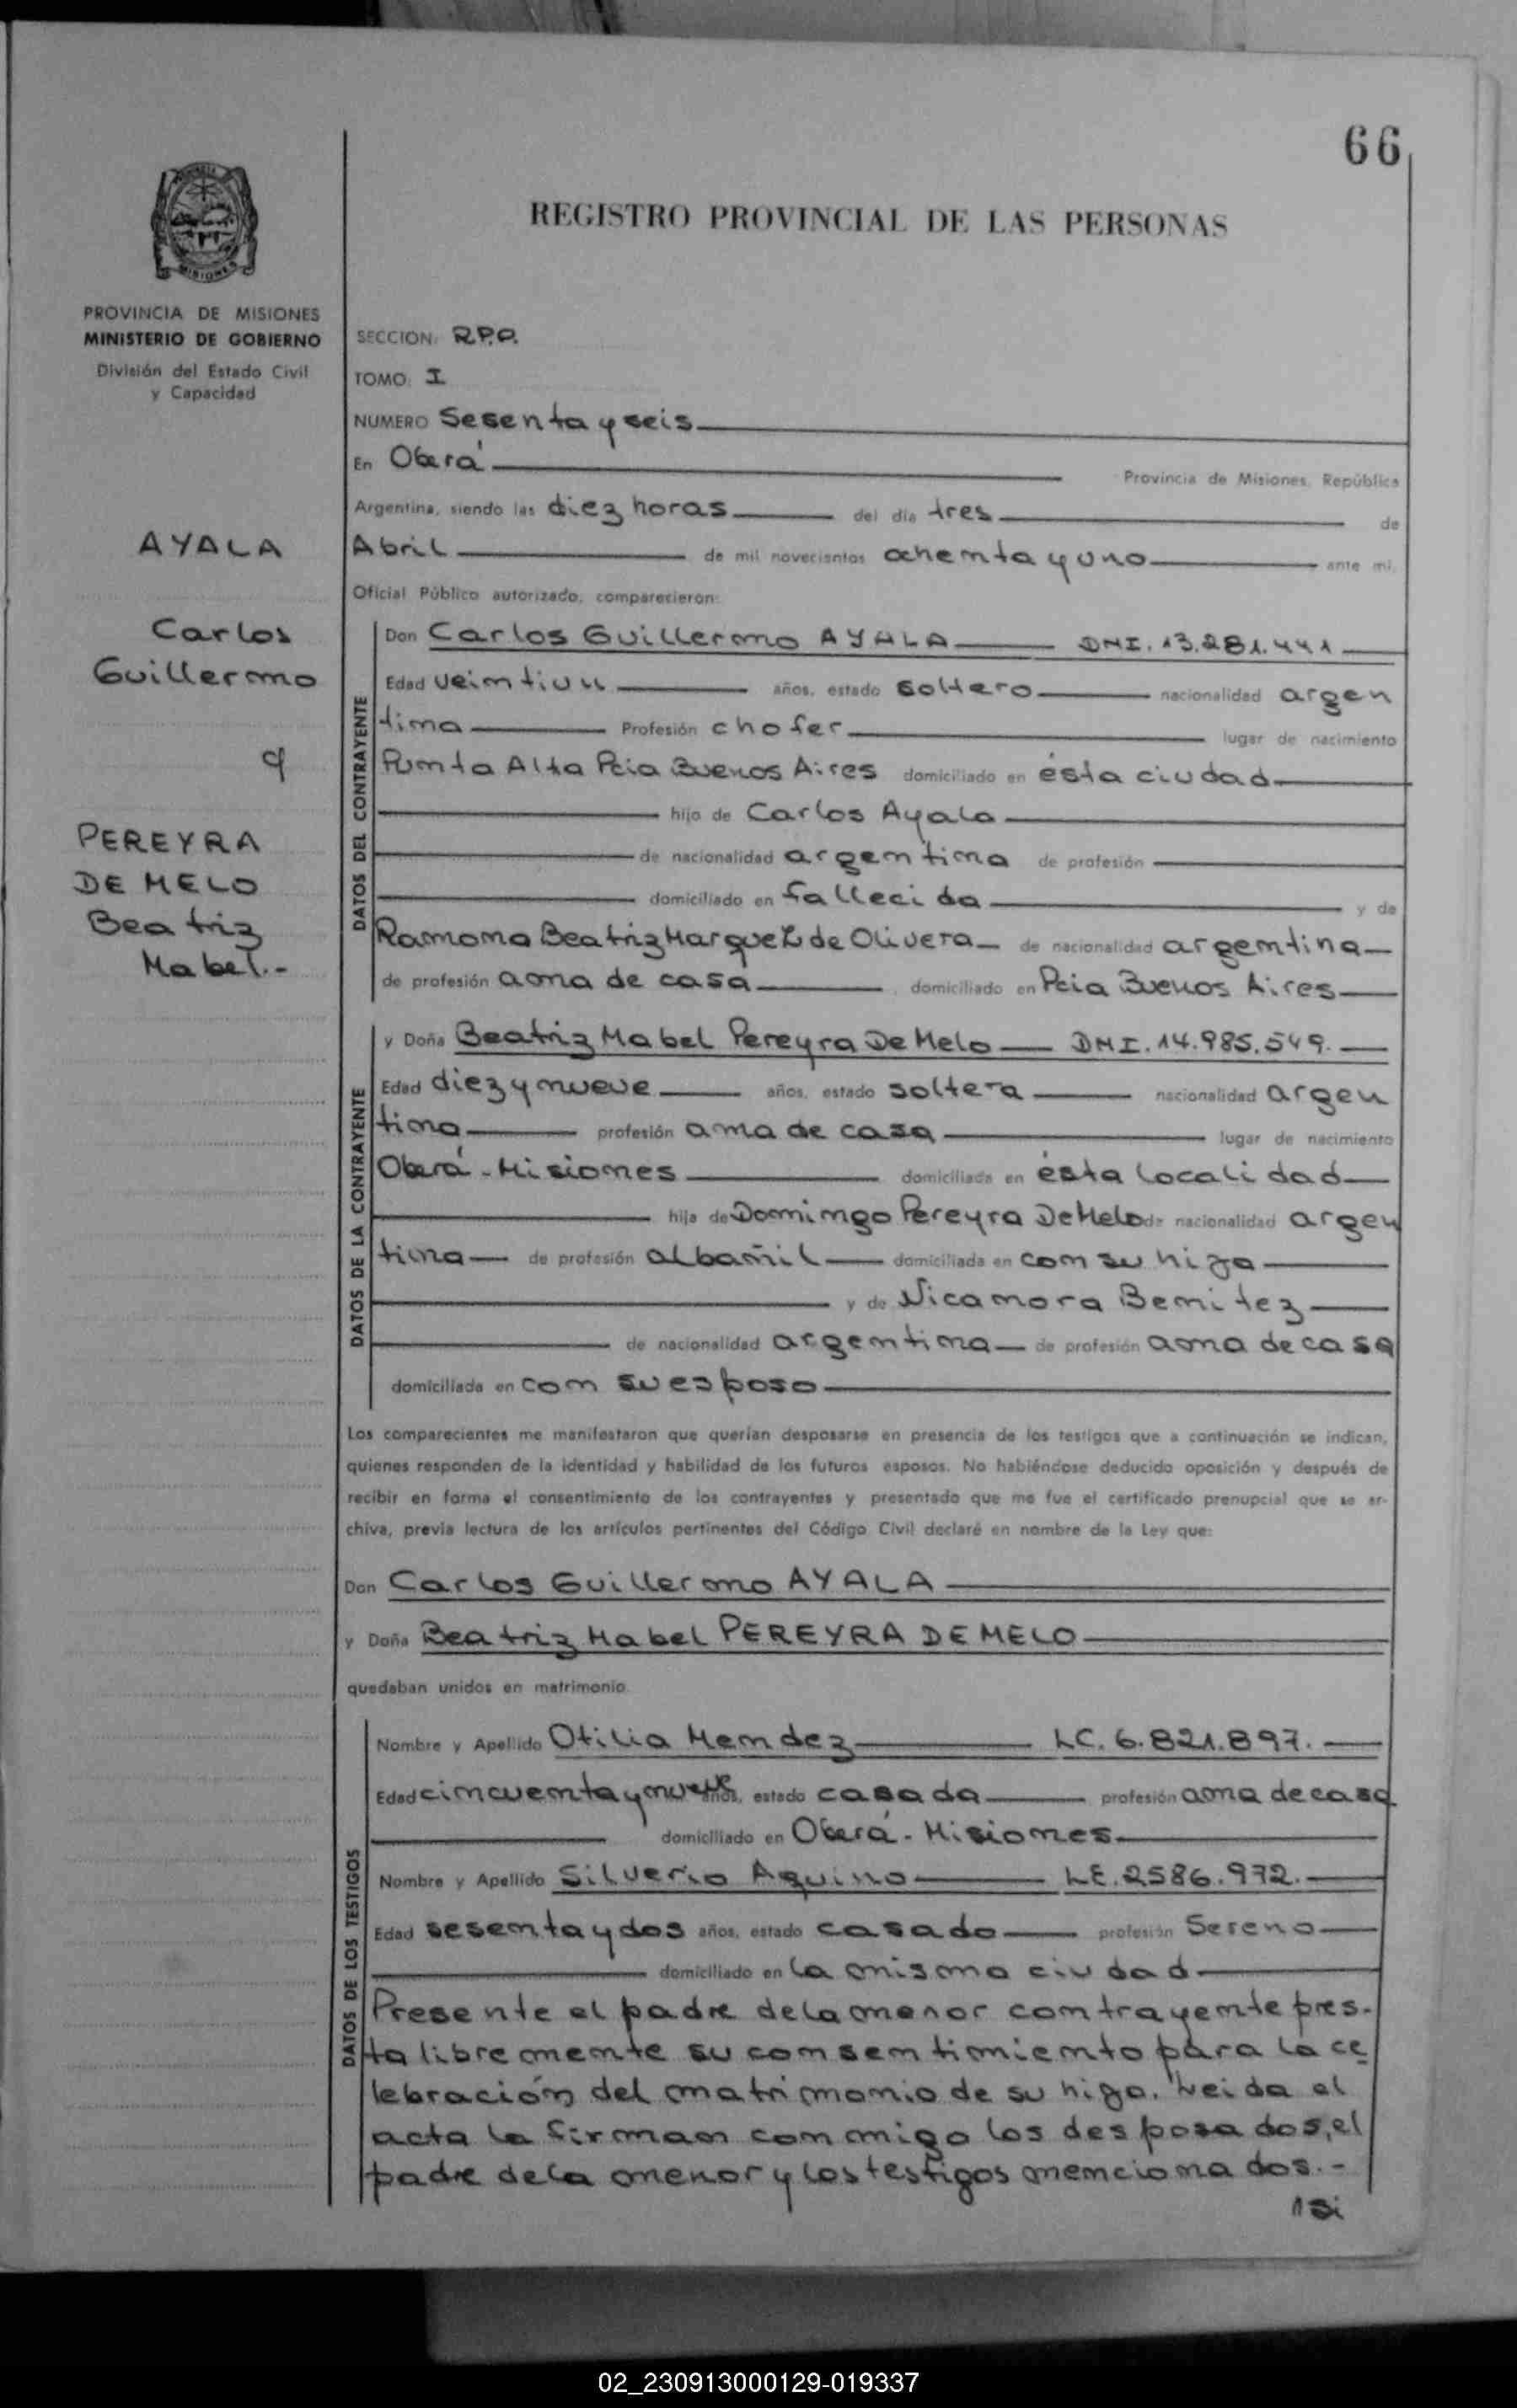 66
REGISTRO PROVINCIAL DE LAS PERSONAS
MISIONES
PROVINCIA DE MISIONES
MINISTERIO DE GOBIERNO
División del Estado Civil
y Capacidad
AYALA
Carlos
Guillermo
y
PEREYRA
DE MELO
Beatriz
Mabel.-
SECCION: R.P.O.
TOMO: I
NUMERO Sesenta y seis
En Oberá Provincia de Misiones, República
Argentina, siendo las diez horas del día tres de
Abril de mil novecientos ochenta y uno ante mi,
Oficial Público autorizado, comparecieron:
DATOS DEL CONTRAYENTE
Don Carlos Guillermo AYALA DNI. 13.281.441
Edad veintiun años, estado soltero nacionalidad argen
tina Profesión chofer lugar de nacimiento
Punta Alta Pcia Buenos Aires domiciliado en ésta ciudad
hijo de Carlos Ayala
de nacionalidad argentina de profesión
domiciliado en fallecido y de
Ramona Beatriz Marquez de Olivera de nacionalidad argentina
de profesión ama de casa domiciliado en Pcia Buenos Aires
DATOS DE LA CONTRAYENTE
y Doña Beatriz Mabel Pereyra De Melo DNI. 14.985.549.
Edad diez y nueve años, estado soltera nacionalidad argen
tina profesión ama de casa lugar de nacimiento
Oberá - Misiones domiciliada en ésta localidad
hija de Domingo Pereyra De Melo de nacionalidad argen
tina de profesión albañil domiciliada en con su hija
y de Nicamora Benitez
de nacionalidad argentina de profesión ama de casa
domiciliada en con su esposo
Los comparecientes me manifestaron que querían desposarse en presencia de los testigos que a continuación se indican,
quienes responden de la identidad y habilidad de los futuros esposos. No habiéndose deducido oposición y después de
recibir en forma el consentimiento de los contrayentes y presentado que me fue el certificado prenupcial que se ar-
chiva, previa lectura de los artículos pertinentes del Código Civil declaré en nombre de la Ley que:
Don Carlos Guillermo AYALA
y Doña Beatriz Mabel PEREYRA DE MELO
quedaban unidos en matrimonio
DATOS DE LOS TESTIGOS
Nombre y Apellido Otilia Mendez LC. 6.821.897.
Edad cincuenta y nueve años, estado casada profesión ama de casa
domiciliado en Oberá - Misiones
Nombre y Apellido Silverio Aquino LE. 2586.972.
Edad sesenta y dos años, estado casado profesión Sereno
domiciliado en la misma ciudad
Presente el padre de la menor contrayente pres-
ta libremente su consentimiento para la ce
lebración del matrimonio de su hija. Leida el
acta la firman conmigo los desposados, el
padre de la menor y los testigos mencionados.-
02_230913000129-019337